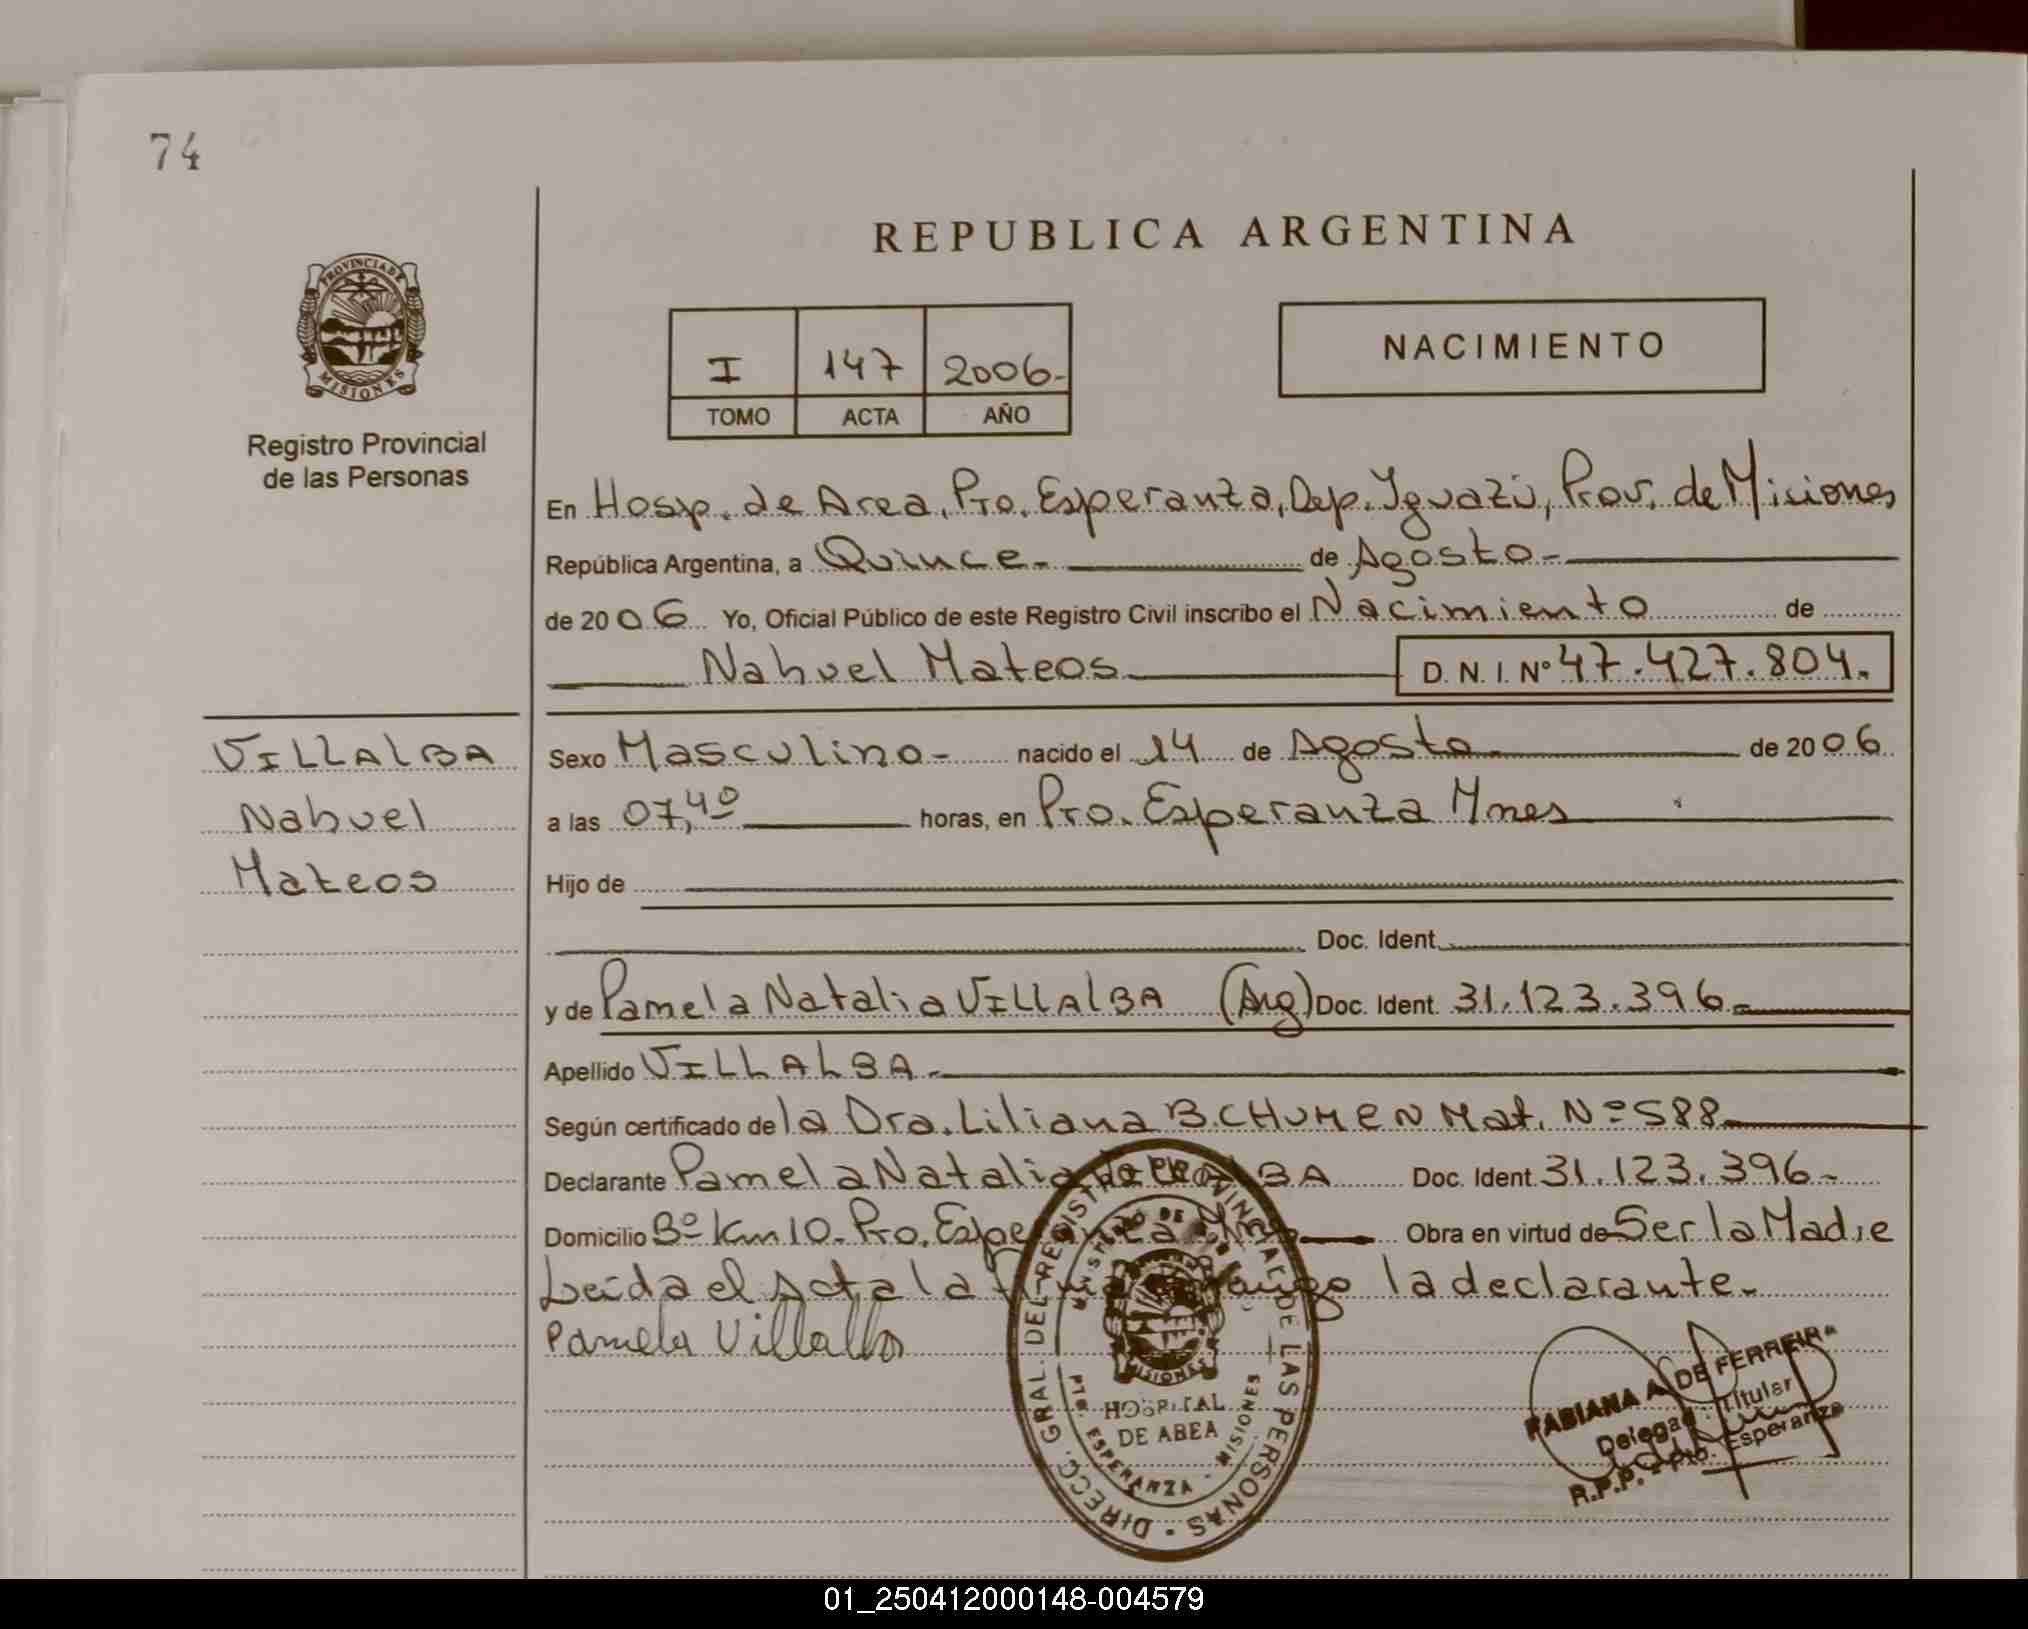 74
REPUBLICA ARGENTINA
PROVINCIA DE
MISIONES
Registro Provincial
de las Personas
I 147 2006-
TOMO ACTA AÑO
NACIMIENTO
En Hosp. de Area, Pto. Esperanza, Dep. Iguazú, Prov. de Miciones
República Argentina, a Quince.- de Agosto.-
de 2006 Yo, Oficial Público de este Registro Civil inscribo el Nacimiento de
Nahuel Mateos D.N.I. Nº 47.427.804.
VILLALBA
Nahuel
Mateos
Sexo Masculino- nacido el 14 de Agosto de 2006
a las 07,40 horas, en Pto. Esperanza Mnes
Hijo de
Doc. Ident.
y de Pamela Natalia VILLALBA (Arg) Doc. Ident. 31.123.396.-
Apellido VILLALBA.-
Según certificado de la Dra. Liliana B. CHUMEN Mat. Nº 588
Declarante Pamela Natalia VILLALBA Doc. Ident. 31.123.396-
Domicilio Bº Km 10. Pto. Esperanza Mnes Obra en virtud de Ser la Madre
Leída el Acta la firma conmigo la declarante.-
Pamela Villalba
DIRECC. GRAL. DEL REGISTRO PROVINCIAL DE LAS PERSONAS
MINISTERIO DE
MISIONES
HOSPITAL
DE AREA
PTO. ESPERANZA - MISIONES
FABIANA A. DE FERREIRA
Delegada Titular
R.P.P. - Pto. Esperanza
01_250412000148-004579